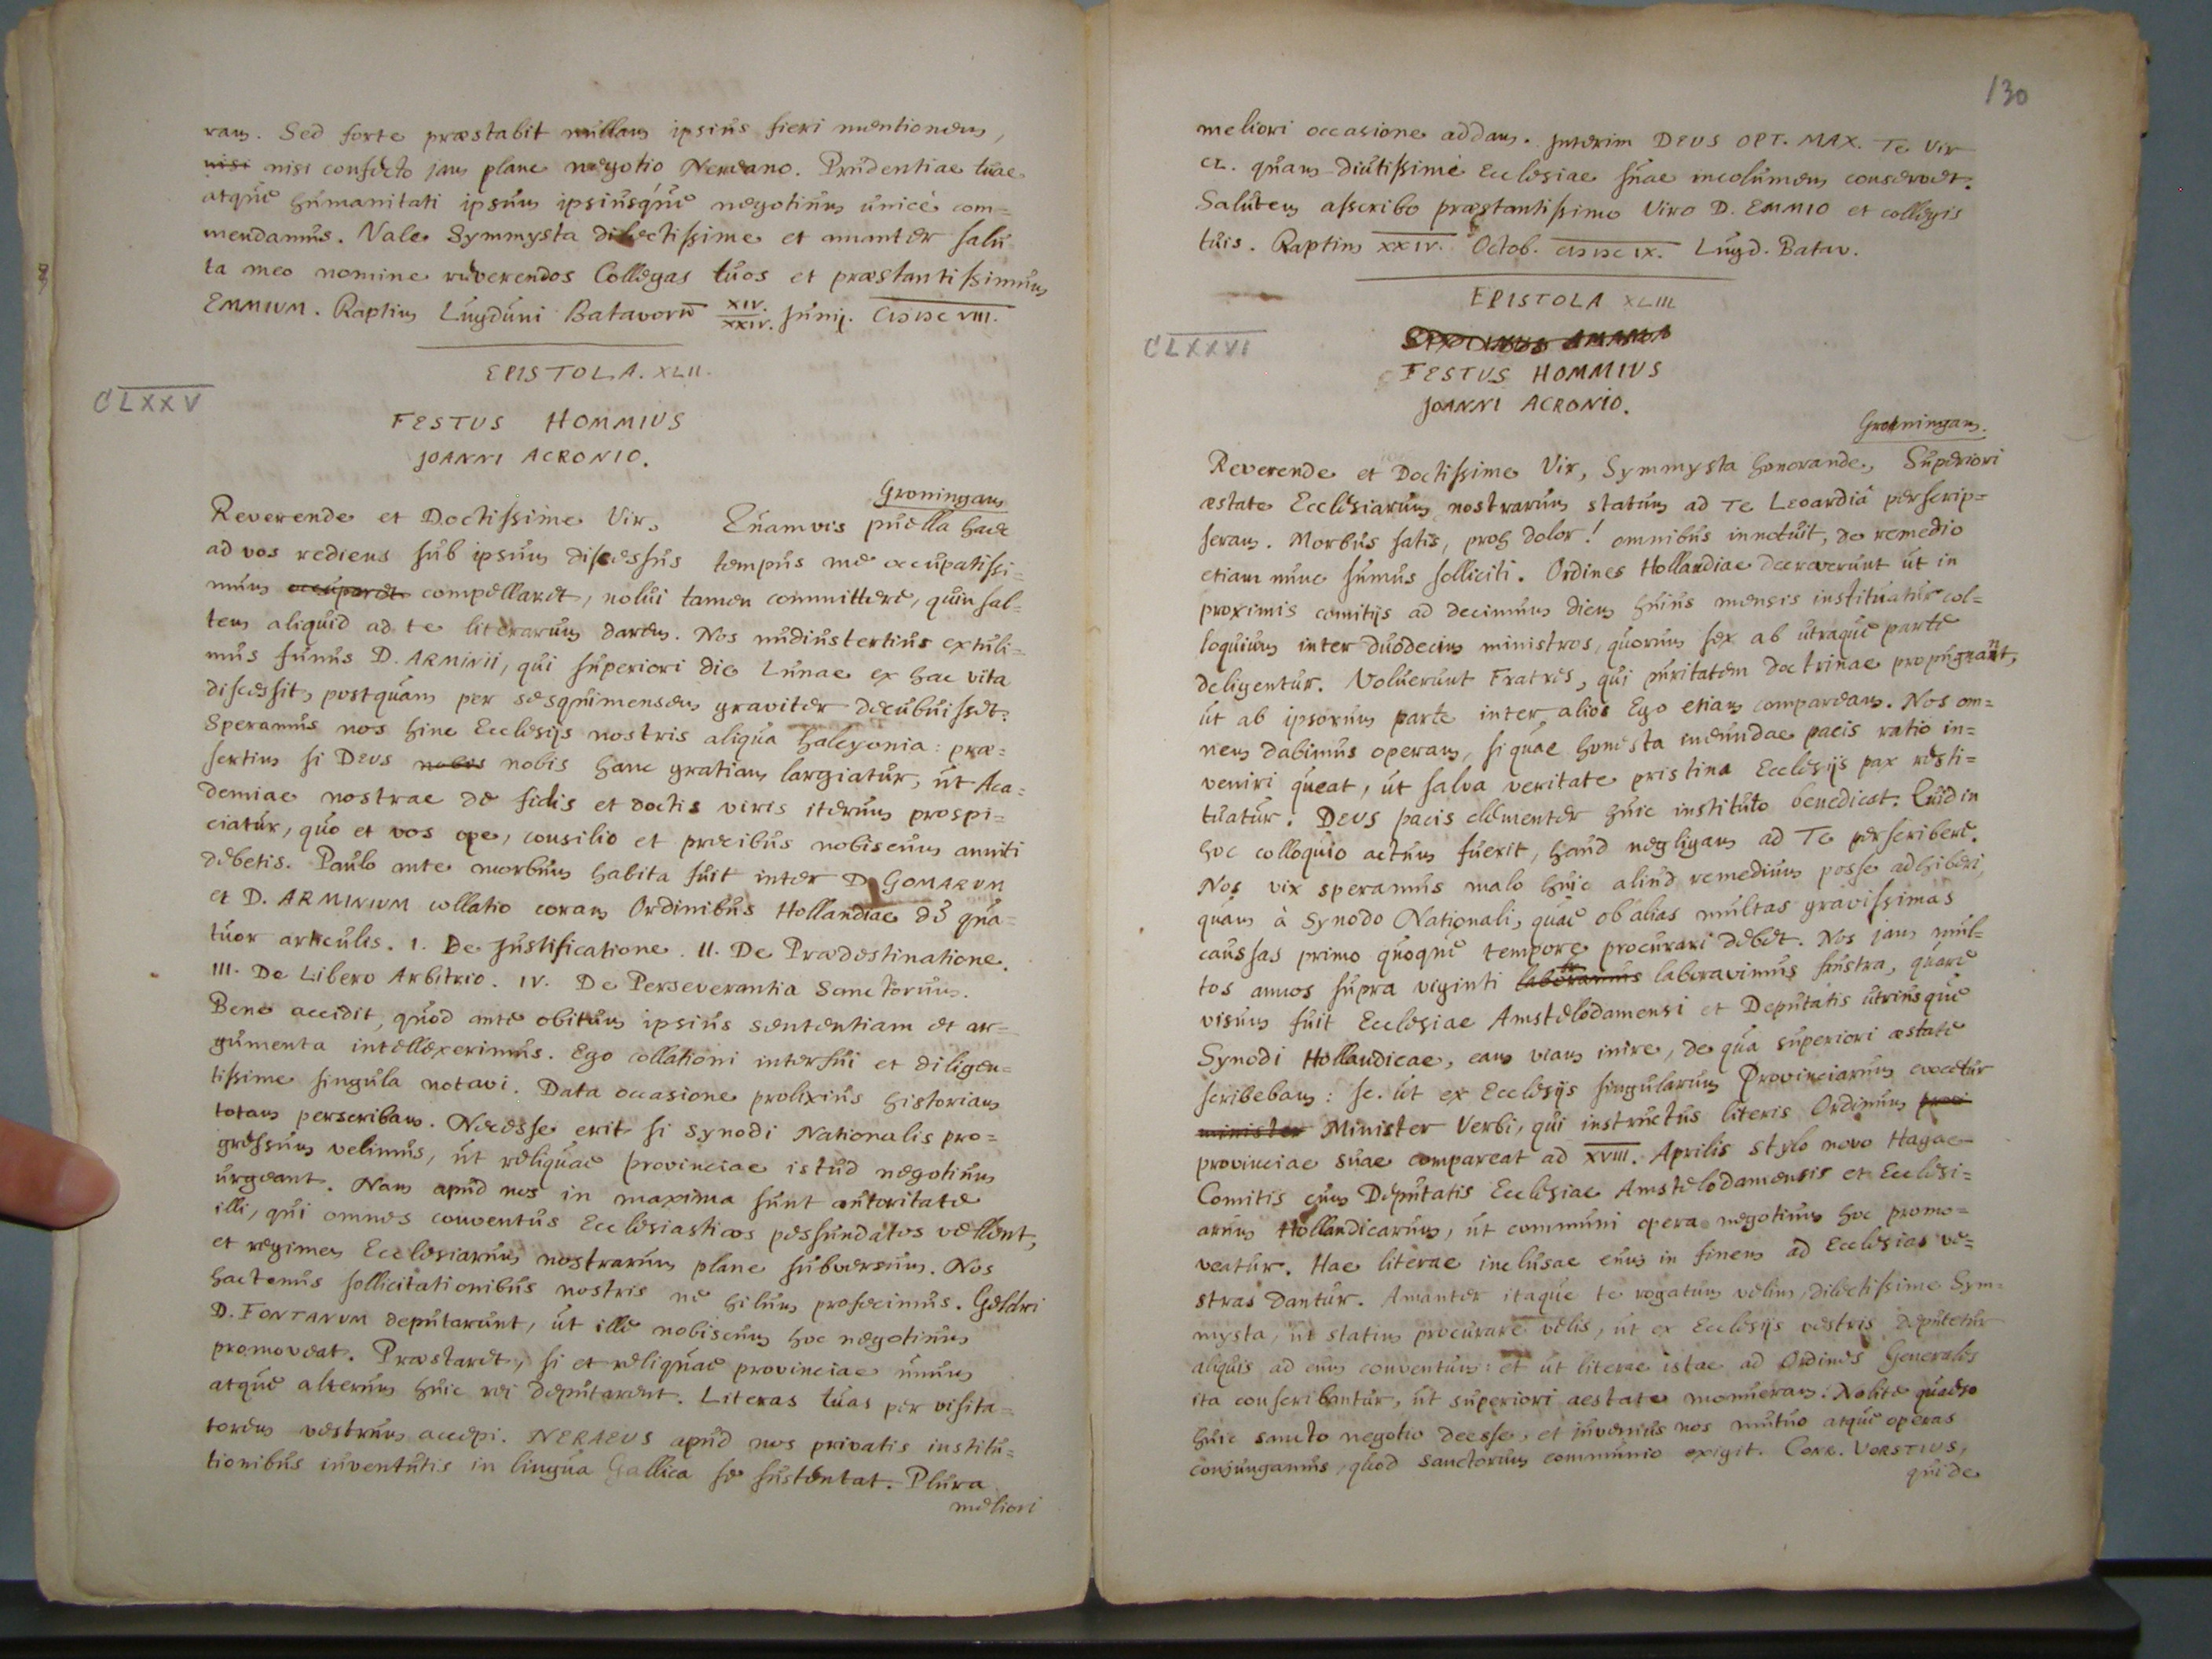 ram. Sed forte præstabit nullam ipsius fieri mentionem,
nisi nisi confecto jam plane negotio Neræano. Prudentiae tuae
atque humanitati ipsum ipsiusque negotium unicè com=
mendamus. Vale Symmysta dilectissime et amanter salu
ta meo nomine reverendos Collegas tuos et præstantissimum
EMMIUM. Raptim Lugduni Batavorū XIV./XXIV. Junij. CIƆIƆC VIII.
EPISTOLA. XLII.
CLXXV
FESTUS HOMMIUS
JOANNI ACRONIO.
Groningam
Reverende et Doctissime Vir, Quamvis puella haec
ad vos rediens sub ipsum discessus tempus me occupatissi=
mum occuparet compellaret, nolui tamen committere, quin sal=
tem aliquid ad te literarum darem. Nos nudiustertius extuli=
mus funus D. ARMINII, qui superiori die Lunae ex hac vita
discessit, postquam per sesquimensem graviter decubuisset.
Speramus nos hinc Ecclesijs nostris aliqua halcyonia: præ=
sertim si DEUS nobis nobis hanc gratiam largiatur, ut Aca=
demiae nostrae de fidis et doctis viris iterum prospi=
ciatur, quo et vos ope, consilio et precibus nobiscum anniti
debetis. Paulo ante morbum habita fuit inter D. GOMARUM
et D. ARMINIUM collatio coram Ordinibus Hollandiae de qua=
tuor articulis. I. De Justificatione. II. De Prædestinatione.
III. De Libero Arbitrio. IV. De Perseverantia Sanctorum.
Bene accidit, quod ante obitum ipsius sententiam et ar=
gumenta intellexerimus. Ego collationi interfui et diligen=
tissime singula notavi. Data occasione prolixius historiam
totam perscribam. Necesse erit si Synodi Nationalis pro=
gressum velimus, ut reliquae provinciae istud negotium
urgeant. Nam apud nos in maxima sunt autoritate
illi, qui omnes conventus Ecclesiasticos pessundatos vellent,
et regimen Ecclesiarum nostrarum plane subversum. Nos
hactenus sollicitationibus nostris ne hilum profecimus. Geldri
D. FONTANUM deputarunt, ut ille nobiscum hoc negotium
promoveat. Præstaret, si et reliquae provinciae unum
atque alterum huic rei deputarent. Literas tuas per visita=
torem vestrum accepi. NERAEUS apud nos privatis institu=
tionibus iuventutis in lingua Gallica se sustentat. Plura
meliori
130
meliori occasione addam. Interim DEUS OPT. MAX. Te Vir
CL. quam diutissimè Ecclesiae suae incolumem conservet.
Salutem asscribo præstantissimo Viro D. EMMIO et collegis
tuis. Raptim XXIV. Octob. CIƆIƆC IX. Lugd. Batav.
EPISTOLA XLIII
CLXXVI
SIXTINUS AMAMA
FESTUS HOMMIUS
JOANNI ACRONIO.
Groeningam.
Reverende et Doctissime Vir, Symmysta honorande, Superiori
æstate Ecclesiarum nostrarum statum ad Te Leoardiâ perscrip=
seram. Morbus satis, proh dolor! omnibus innotuit, de remedio
etiam nunc sumus solliciti. Ordines Hollandiae decreverunt ut in
proximis comitijs ad decimum diem huius mensis instituatur col=
loquium inter duodecim ministros, quorum sex ab utraque parte
deligentur. Voluerunt Fratres, qui puritatem doctrinae propugnant,
ut ab ipsorum parte inter alios Ego etiam compaream. Nos om=
nem dabimus operam, si quae honesta ineundae pacis ratio in=
veniri queat, ut salva veritate pristina Ecclesijs pax resti=
tuatur. DEUS pacis clementer huic instituto benedicat. Quid in
hoc colloquio actum fuerit, haud negligam ad Te perscribere.
Nos vix speramus malo huic aliud remedium posse adhiberi,
quam à Synodo Nationali, quae ob alias multas gravissimas
caussas primo quoque tempore procurari debet. Nos jam mul=
tos annos supra viginti laboramus laboravimus frustra, quare
visum fuit Ecclesiae Amstelodamensi et Deputatis utriusque
Synodi Hollandicae, eam viam inire, de qua superiori æstate
scribebam: sc. ut ex Ecclesijs singularum Provinciarum evocetur
minister Minister Verbi, qui instructus literis Ordinum provi
provinciae suae compareat ad XVIII. Aprilis stylo novo Hagae=
Comitis cum Deputatis Ecclesiae Amstelodamensis et Ecclesi=
arum Hollandicarum, ut communi opera negotium hoc promo=
veatur. Hae literae inclusae eum in finem ad Ecclesias ve=
stras dantur. Amanter itaque te rogatum velim, dilectissime Sym=
mysta, ut statim procurare velis, ut ex Ecclesijs vestris deputetur
aliquis ad eum conventum: et ut literae istae ad Ordines Generales
ita conscribantur, ut superiori aestate monueram. Nolite quaeso
huic sancto negotio deesse, et iuvemus nos mutuo atque operas
conjungamus, quod sanctorum communio exigit. CONR. VORSTIUS,
qui de